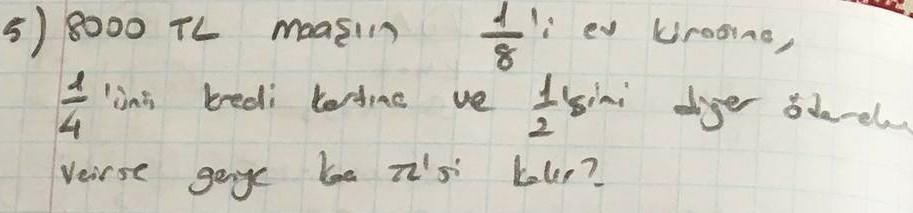 5) 8000 TL maaşın 1/8'i ev kirasına,
1/4'ünü kredi kartına ve 1/2'sini diğer ödemelere
verirse geriye kaç TL'si kalır?